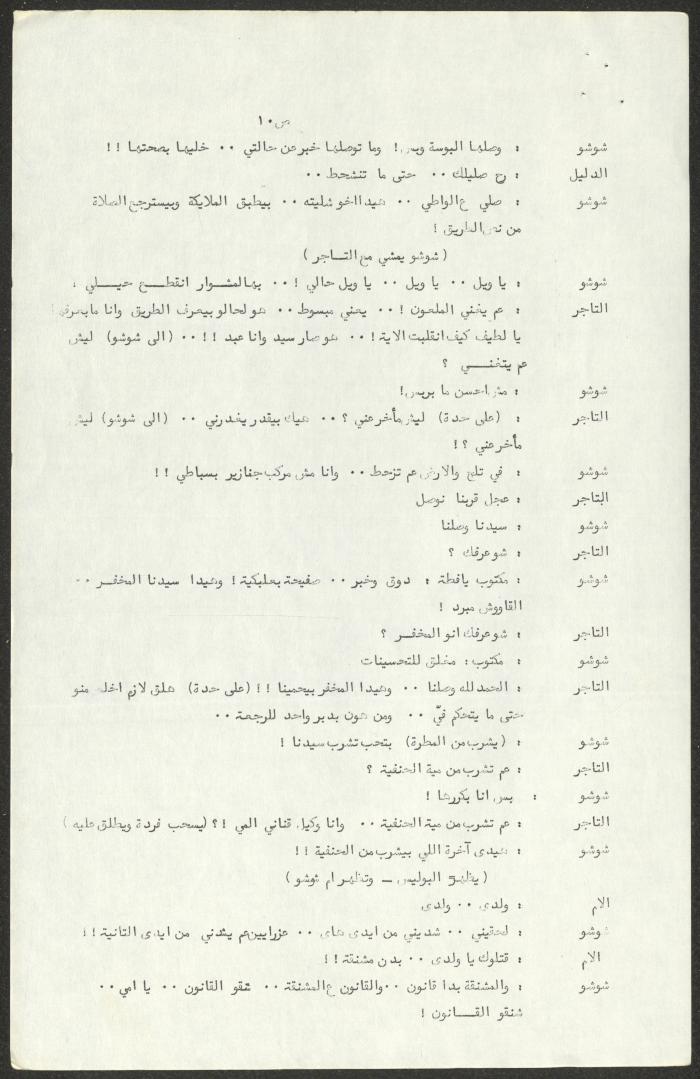 ص ١٠
شوشو : وصلها البوسة وبس! وما توصلها خبر عن حالتي ٠٠ خليها بصحتها !!
الدليل : رح صليلك ٠٠ حتى ما تنشحط ٠٠
شوشو : صلي ع الواطي ٠٠ هيدا اخو شليته ٠٠ بيطبق الملايكة وبيسترجع الصلاة
من نص الطريق !
( شوشو يمشي مع التـاجر )
شوشو : يا ويل ٠٠ يا ويل ٠٠ يا ويل حالي !٠٠ بها المشوار انقطـع حيـلي ،
التاجر : عم يغني الملعون !٠٠ يعني مبسوط ٠٠ هو لحالو بيعرف الطريق وانا ما بعرفها
يا لطيف كيف انقلبت الاية !٠٠ هو صار سيد وانا عبد !!٠٠ (الى شوشو) ليش
عم يتغنــي ؟
شوشو : مش احسن ما بريس!
التاجر : (على حدة) ليش مأخر عني ؟٠٠ هيك بيقدر يغدرني ٠٠ (الى شوشو) ليش
مأخر عني ؟!
شوشو : في تلج والارض عم تزحط ٠٠ وانا مش مركب جنازير بسباطي !!
التاجر : عجل قربنا نوصل
شوشو : سيدنا وصلنا
التاجر : شو عرفك ؟
شوشو : مكتوب يافطة : دوق وخبر ٠٠ صفيحة بعلبكية ! وهيدا سيدنا المخفـر ٠٠
القاووش مبرد !
التاجر : شو عرفك انو المخفـر ؟
شوشو : مكتوب : مغلق للتحسينات
التاجر : الحمدلله وصلنا ٠٠ وهيدا المخفر بيحمينا !! (على حدة) هلق لازم اخلص منو
حتى ما يتحكم فيّ ٠٠ ومن هون بدبر واحد للرجعة ٠٠
شوشو : (يشرب من المطرة) بتحب تشرب سيدنا !
التاجر : عم تشرب من مية الحنفية ؟
شوشو : بس انا بكررها !
التاجر : عم تشرب من مية الحنفية ٠٠ وانا وكيل قناني المي !؟ (يسحب فردة ويطلق عليه)
شوشو : هيدي آخرة اللي بيشرب من الحنفية !!
( يظهر البوليس ـ وتظهر ام شوشو )
الام : ولدى ٠٠ ولدى
شوشو : لحقيني ٠٠ شديني من ايدى هاى ٠٠ عزرايين عم يشدني من ايدى التانية !!
الام : قتلوك يا ولدى ٠٠ بدن مشنقة !!
شوشو : والمشنقة بدا قانون ٠٠ والقانون ع المشنقة ٠٠ شنقو القانون ٠٠ يا امي ٠٠
شنقو القــانون !